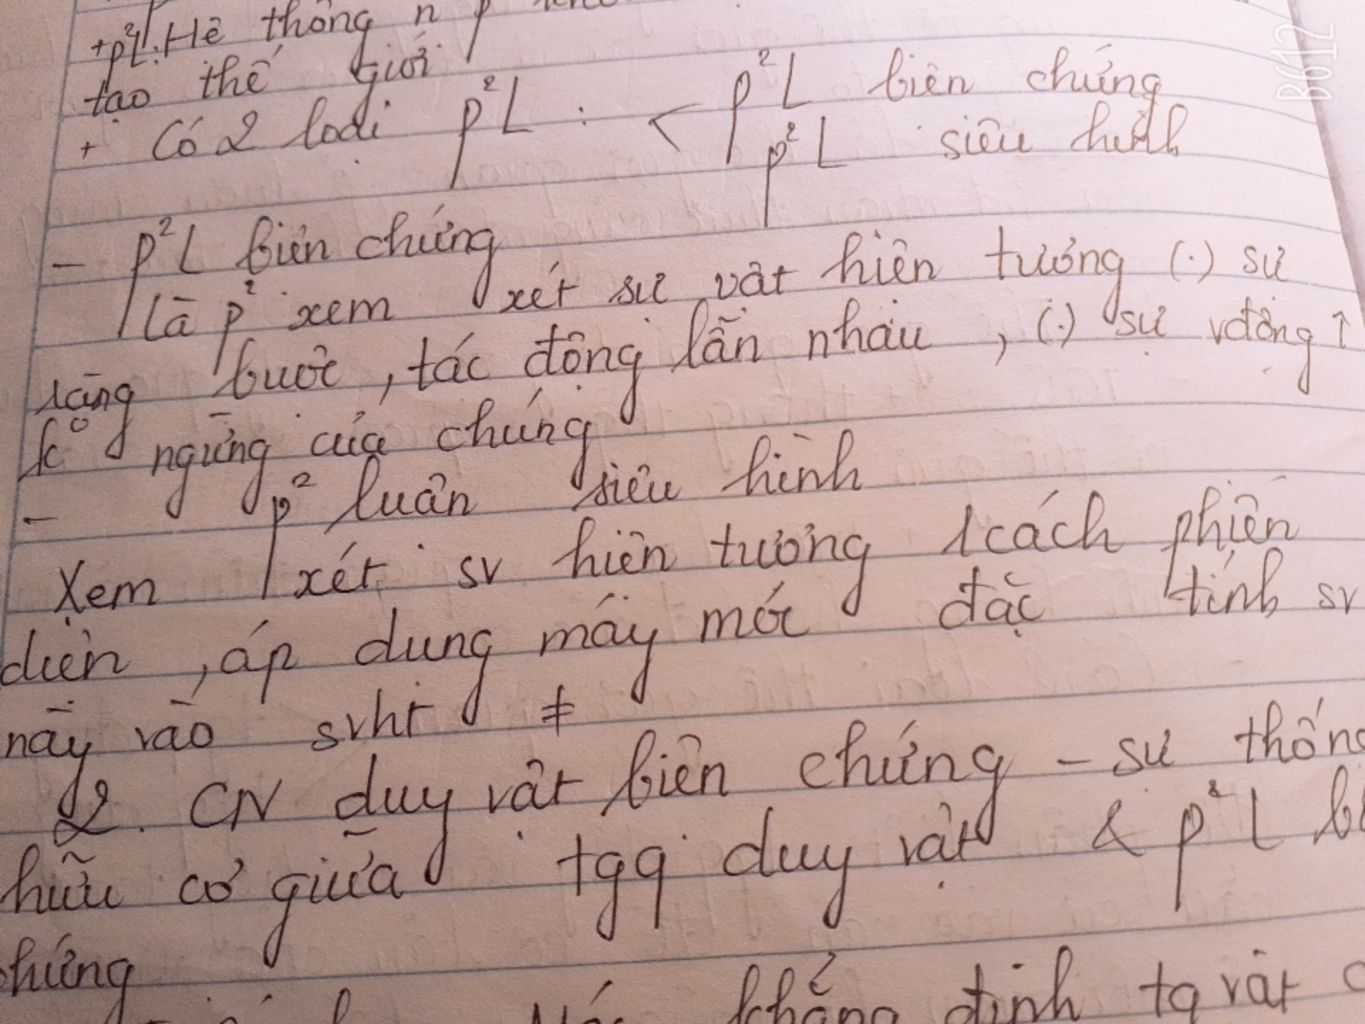 +p²L: Hệ thống n p
tạo thế giới
+ Có 2 loại p²L : < p²L biện chứng
p²L siêu hình
- p²L biện chứng
là p² xem xét sự vật hiện tượng (.) sự
ràng buộc, tác động lẫn nhau, (.) sự vđộng ↑
k° ngừng của chúng
- p² luận siêu hình
Xem xét sv hiện tượng 1 cách phiến
diện, áp dụng máy móc đặc tính sv
này vào svht ≠
2. CN duy vật biện chứng - sự thống
hữu cơ giữa tgq duy vật & p²L bi
hứng
khẳng định tg vật c
B612